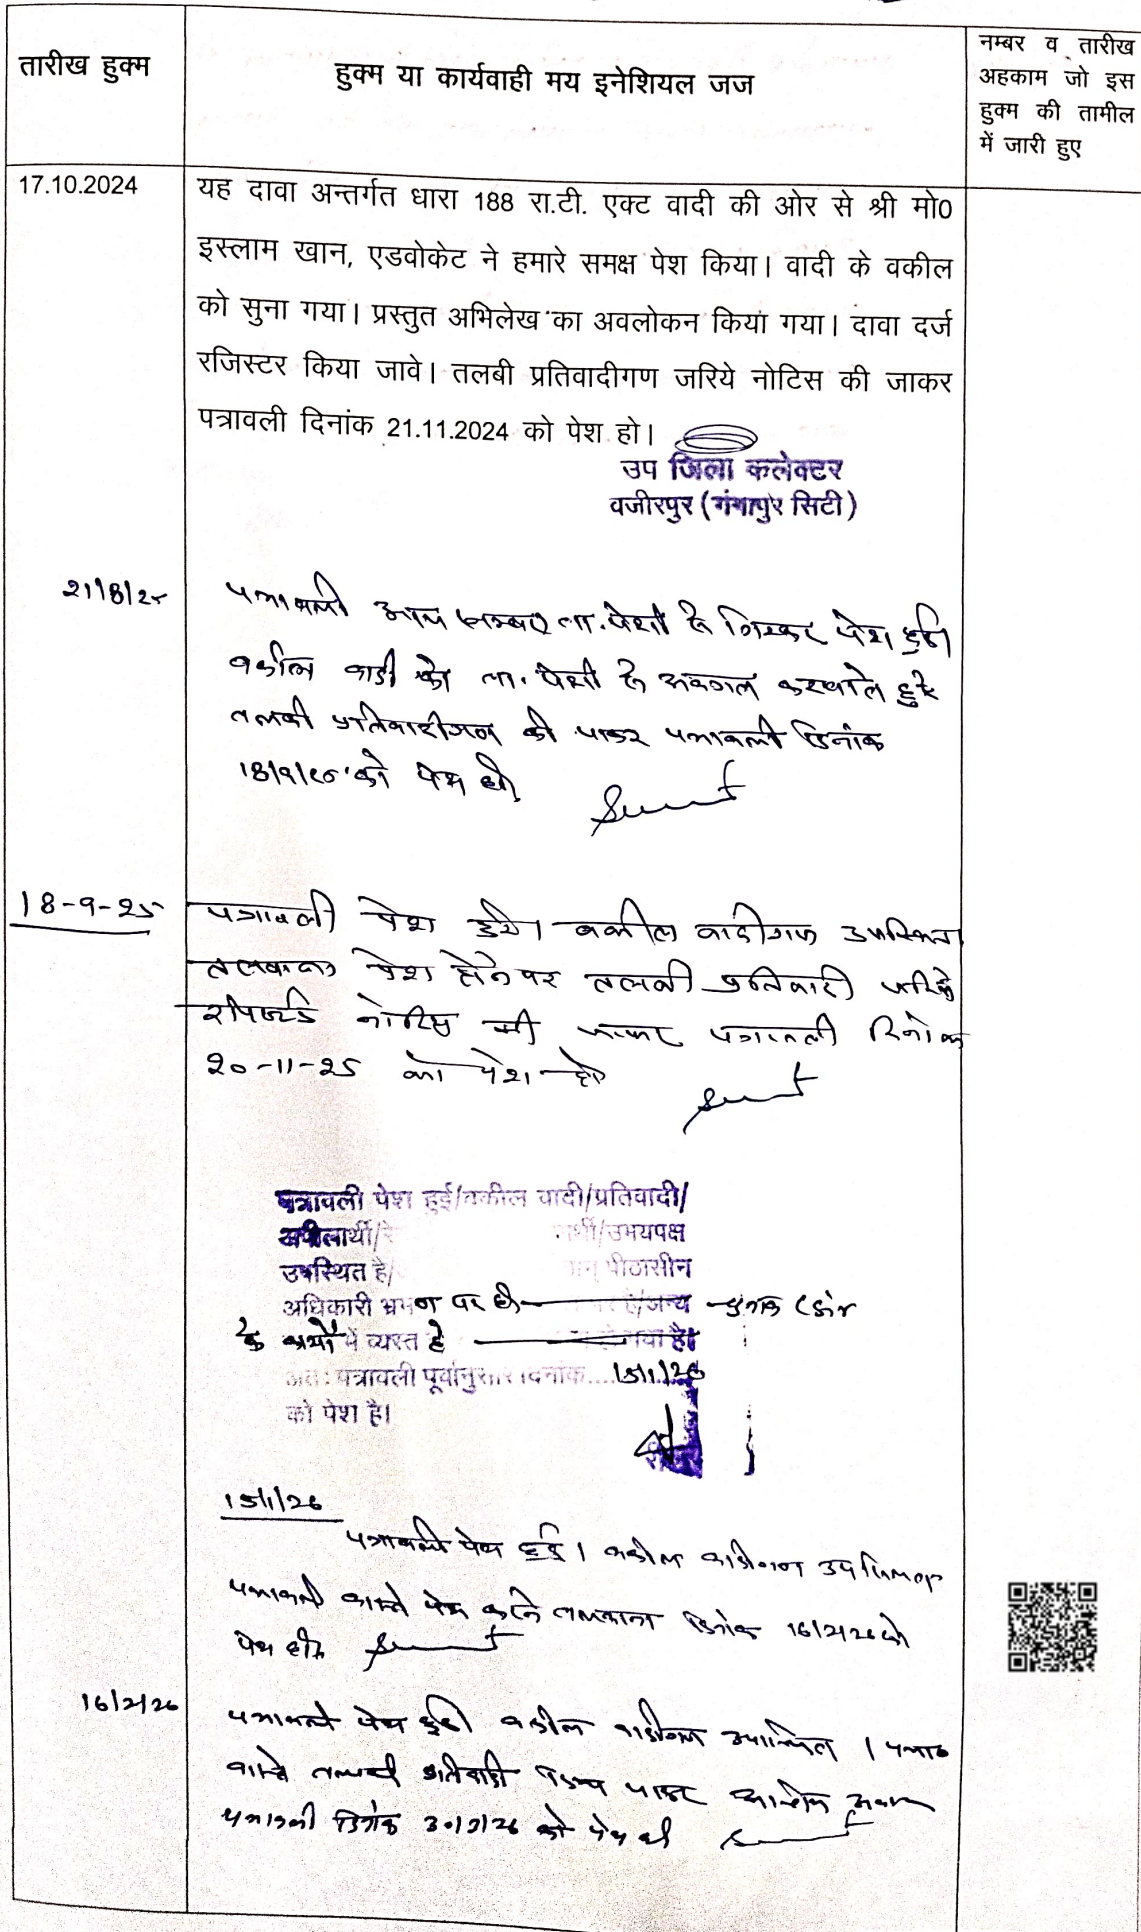 तारीख हुक्म
हुक्म या कार्यवाही मय इनेशियल जज
नम्बर व तारीख
अहकाम जो इस
हुक्म की तामील
में जारी हुए
17.10.2024
यह दावा अन्तर्गत धारा 188 रा.टी. एक्ट वादी की ओर से श्री मो0
इस्लाम खान, एडवोकेट ने हमारे समक्ष पेश किया। वादी के वकील
को सुना गया। प्रस्तुत अभिलेख का अवलोकन किया गया। दावा दर्ज
रजिस्टर किया जावे। तलबी प्रतिवादीगण जरिये नोटिस की जाकर
पत्रावली दिनांक 21.11.2024 को पेश हो।
उप जिला कलेक्टर
वजीरपुर (गंगापुर सिटी)
21/8/25
पत्रावली आज ता. पेशी से पेश हुई।
वकील वादी को ता. पेशी से अवगत करवाते हुये
तलबी प्रतिवादीगण की जाकर पत्रावली दिनांक
18/9/25 को पेश हो
18-9-25
पत्रावली पेश हुई। वकील वादीगण उपस्थित
तलबाना पेश होने पर तलबी प्रतिवादी जरिये
नोटिस की जाकर पत्रावली दिनांक
20-11-25 को पेश हो
पत्रावली पेश हुई/वकील वादी/प्रतिवादी/
अपीलार्थी/ /उभयपक्ष
उपस्थित है/ पीठासीन
अधिकारी भ्रमण पर है /अन्य
कार्यों में व्यस्त है
अतः पत्रावली पूर्वानुसार दिनांक....15/1/26
को पेश है।
15/1/26
पत्रावली पेश हुई। वकील वादीगण उपस्थित
पत्रावली वास्ते पेश करने तलबाना दिनांक 16/2/26 को
पेश हो
16/2/26
पत्रावली पेश हुई। वकील वादीगण उपस्थित।
वास्ते तलबी प्रतिवादी
पत्रावली दिनांक को पेश हो